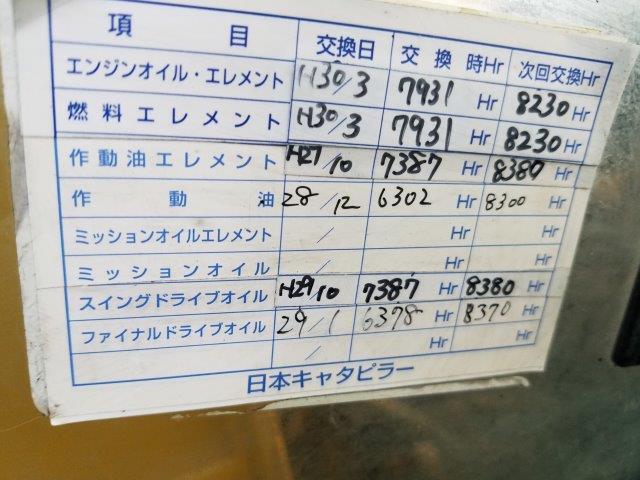 項 目 交換日 交 換 時Hr 次回交換Hr
エンジンオイル・エレメント H30/3 7931 Hr 8230 Hr
燃料エレメント H30/3 7931 Hr 8230 Hr
作動油エレメント /10 7387 Hr 8380 Hr
作 動 油 28/12 6302 Hr 8300 Hr
ミッションオイルエレメント / Hr Hr
ミッションオイル / Hr Hr
スイングドライブオイル H29/10 7387 Hr 8380 Hr
ファイナルドライブオイル 29/1 6378 Hr 8370 Hr
/ Hr Hr
日本キャタピラー